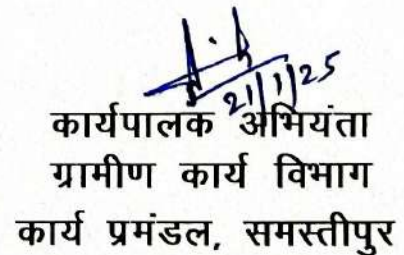 21/1/25
कार्यपालक अभियंता
ग्रामीण कार्य विभाग
कार्य प्रमंडल, समस्तीपुर